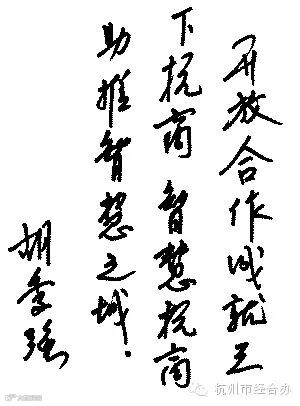 开放合作成就天
下杭商 智慧杭商
助推智慧之城.
胡季强
杭州市经合办